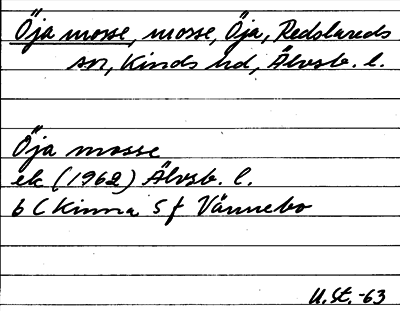 Öja mosse, mosse, Öja, Redslareds
sn, Kinds hd, Älvsb. l.
Öja mosse
ek (1962) Älvsb. l.
6 C Kinna 5 f Vännebo
U.St. -63